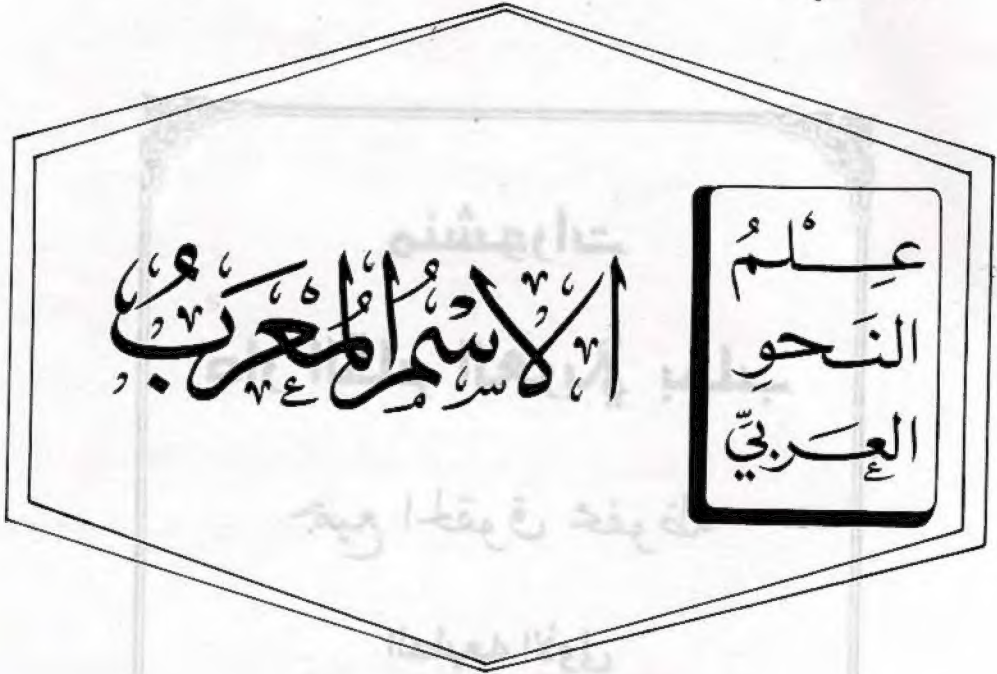 عِـلْمُ
النَـحوِ
العـَـربيِّ
الاسْمُ المُعْرَبُ